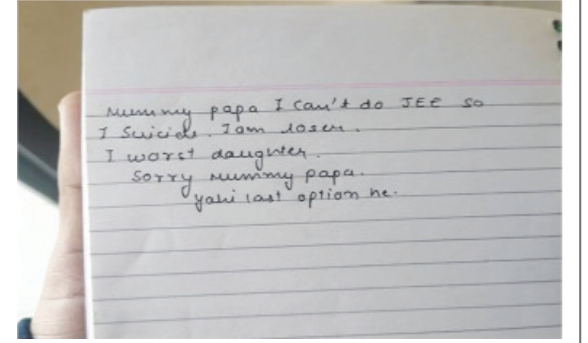 Mummy papa I can't do JEE so
I Suicide. I am loser.
I worst daughter.
Sorry mummy papa.
yahi last option he.